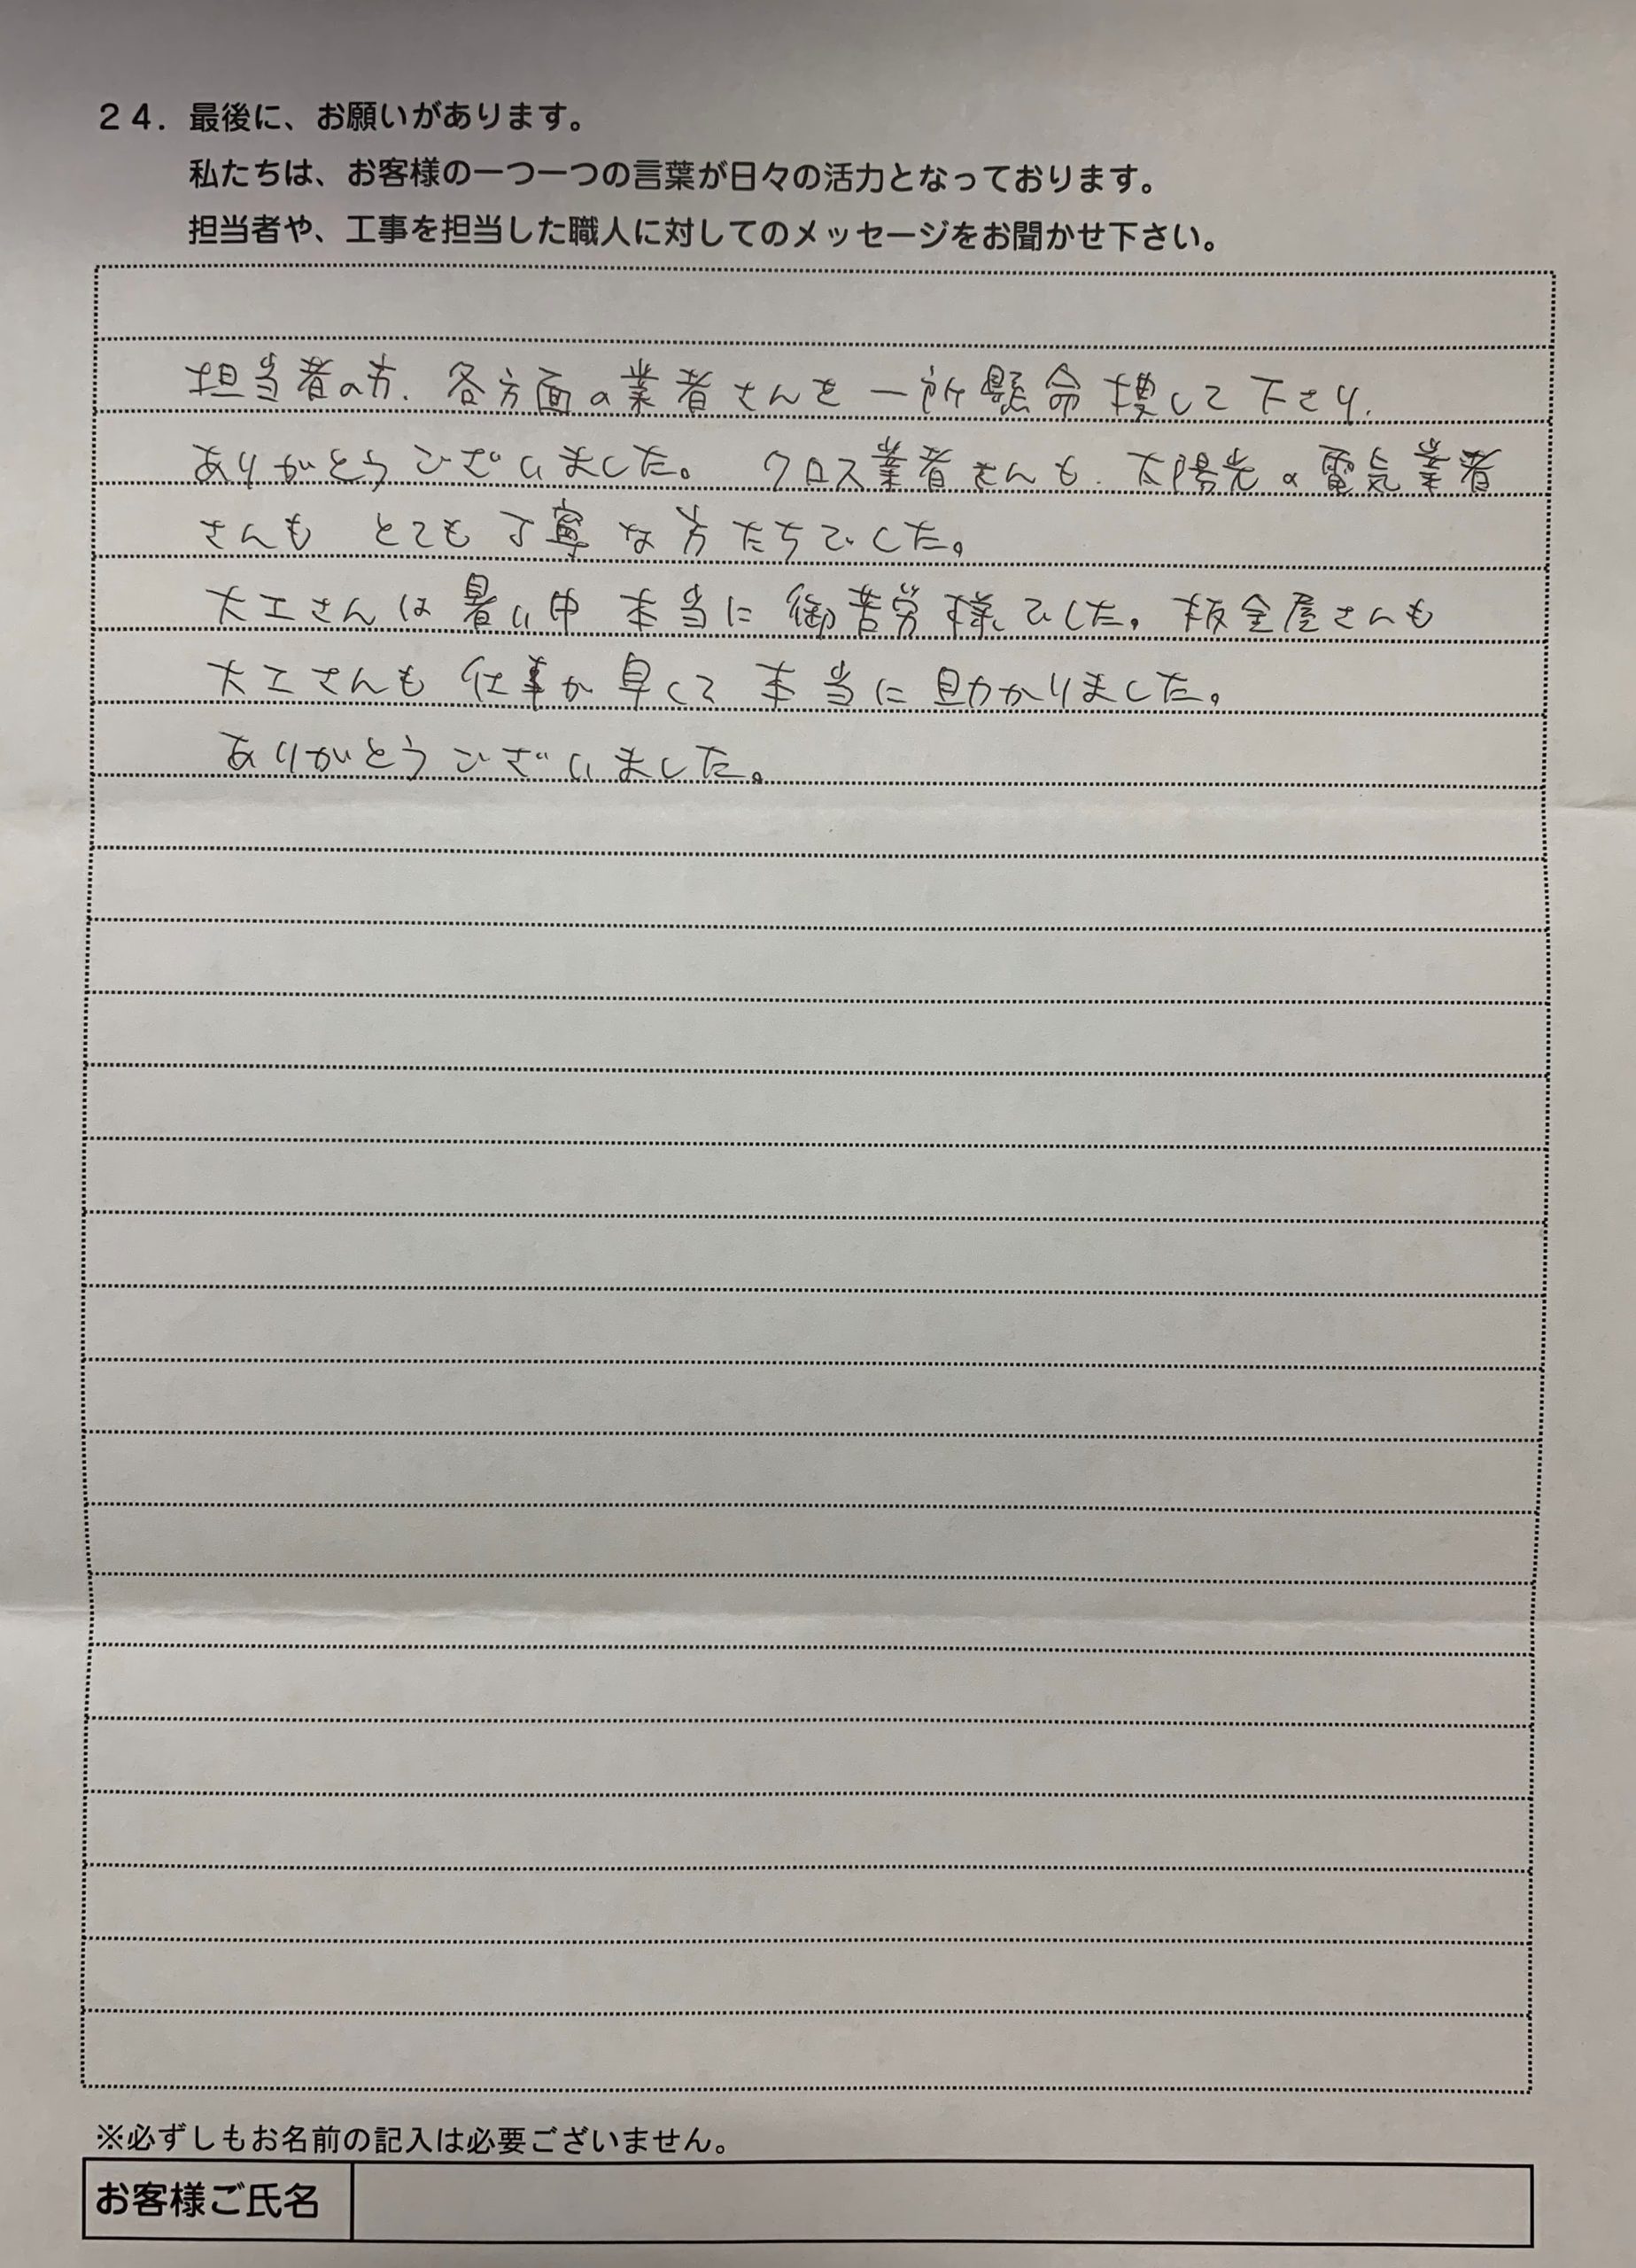 24. 最後に、お願いがあります。
私たちは、お客様の一つ一つの言葉が日々の活力となっております。
担当者や、工事を担当した職人に対してのメッセージをお聞かせ下さい。
担当者の方、各方面の業者さんを一所懸命捜して下さり、
ありがとうございました。 クロス業者さんも、太陽光の電気業者
さんも とても丁寧な方たちでした。
大工さんは暑い中 本当に御苦労様でした。板金屋さんも
大工さんも 仕事が早くて 本当に助かりました。
ありがとうございました。
※必ずしもお名前の記入は必要ございません。
お客様ご氏名